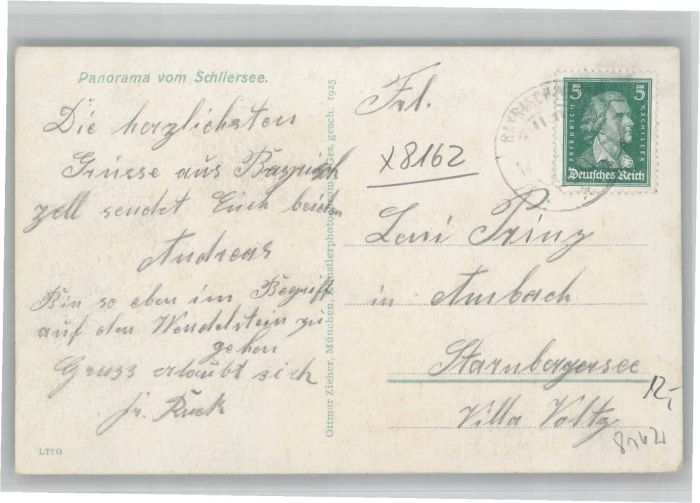 Panorama vom Schliersee.
Die herzlichsten
Grüsse aus Bayrisch
zell sendet Euch beiden
Andreas
Bin so eben im Begriff
auf den Wendelstein zu
gehen
Gruss erlaubt sich
LTTO
Ottmar Zieher, München, Künstlerphotochrom Ges. gesch. 1925
Frl.
x8162
Prinz
in Ambach
Starnbergersee
Villa Voltz
12,-
8162
5 5
FRIEDRICH V. SCHILLER
Deutsches Reich